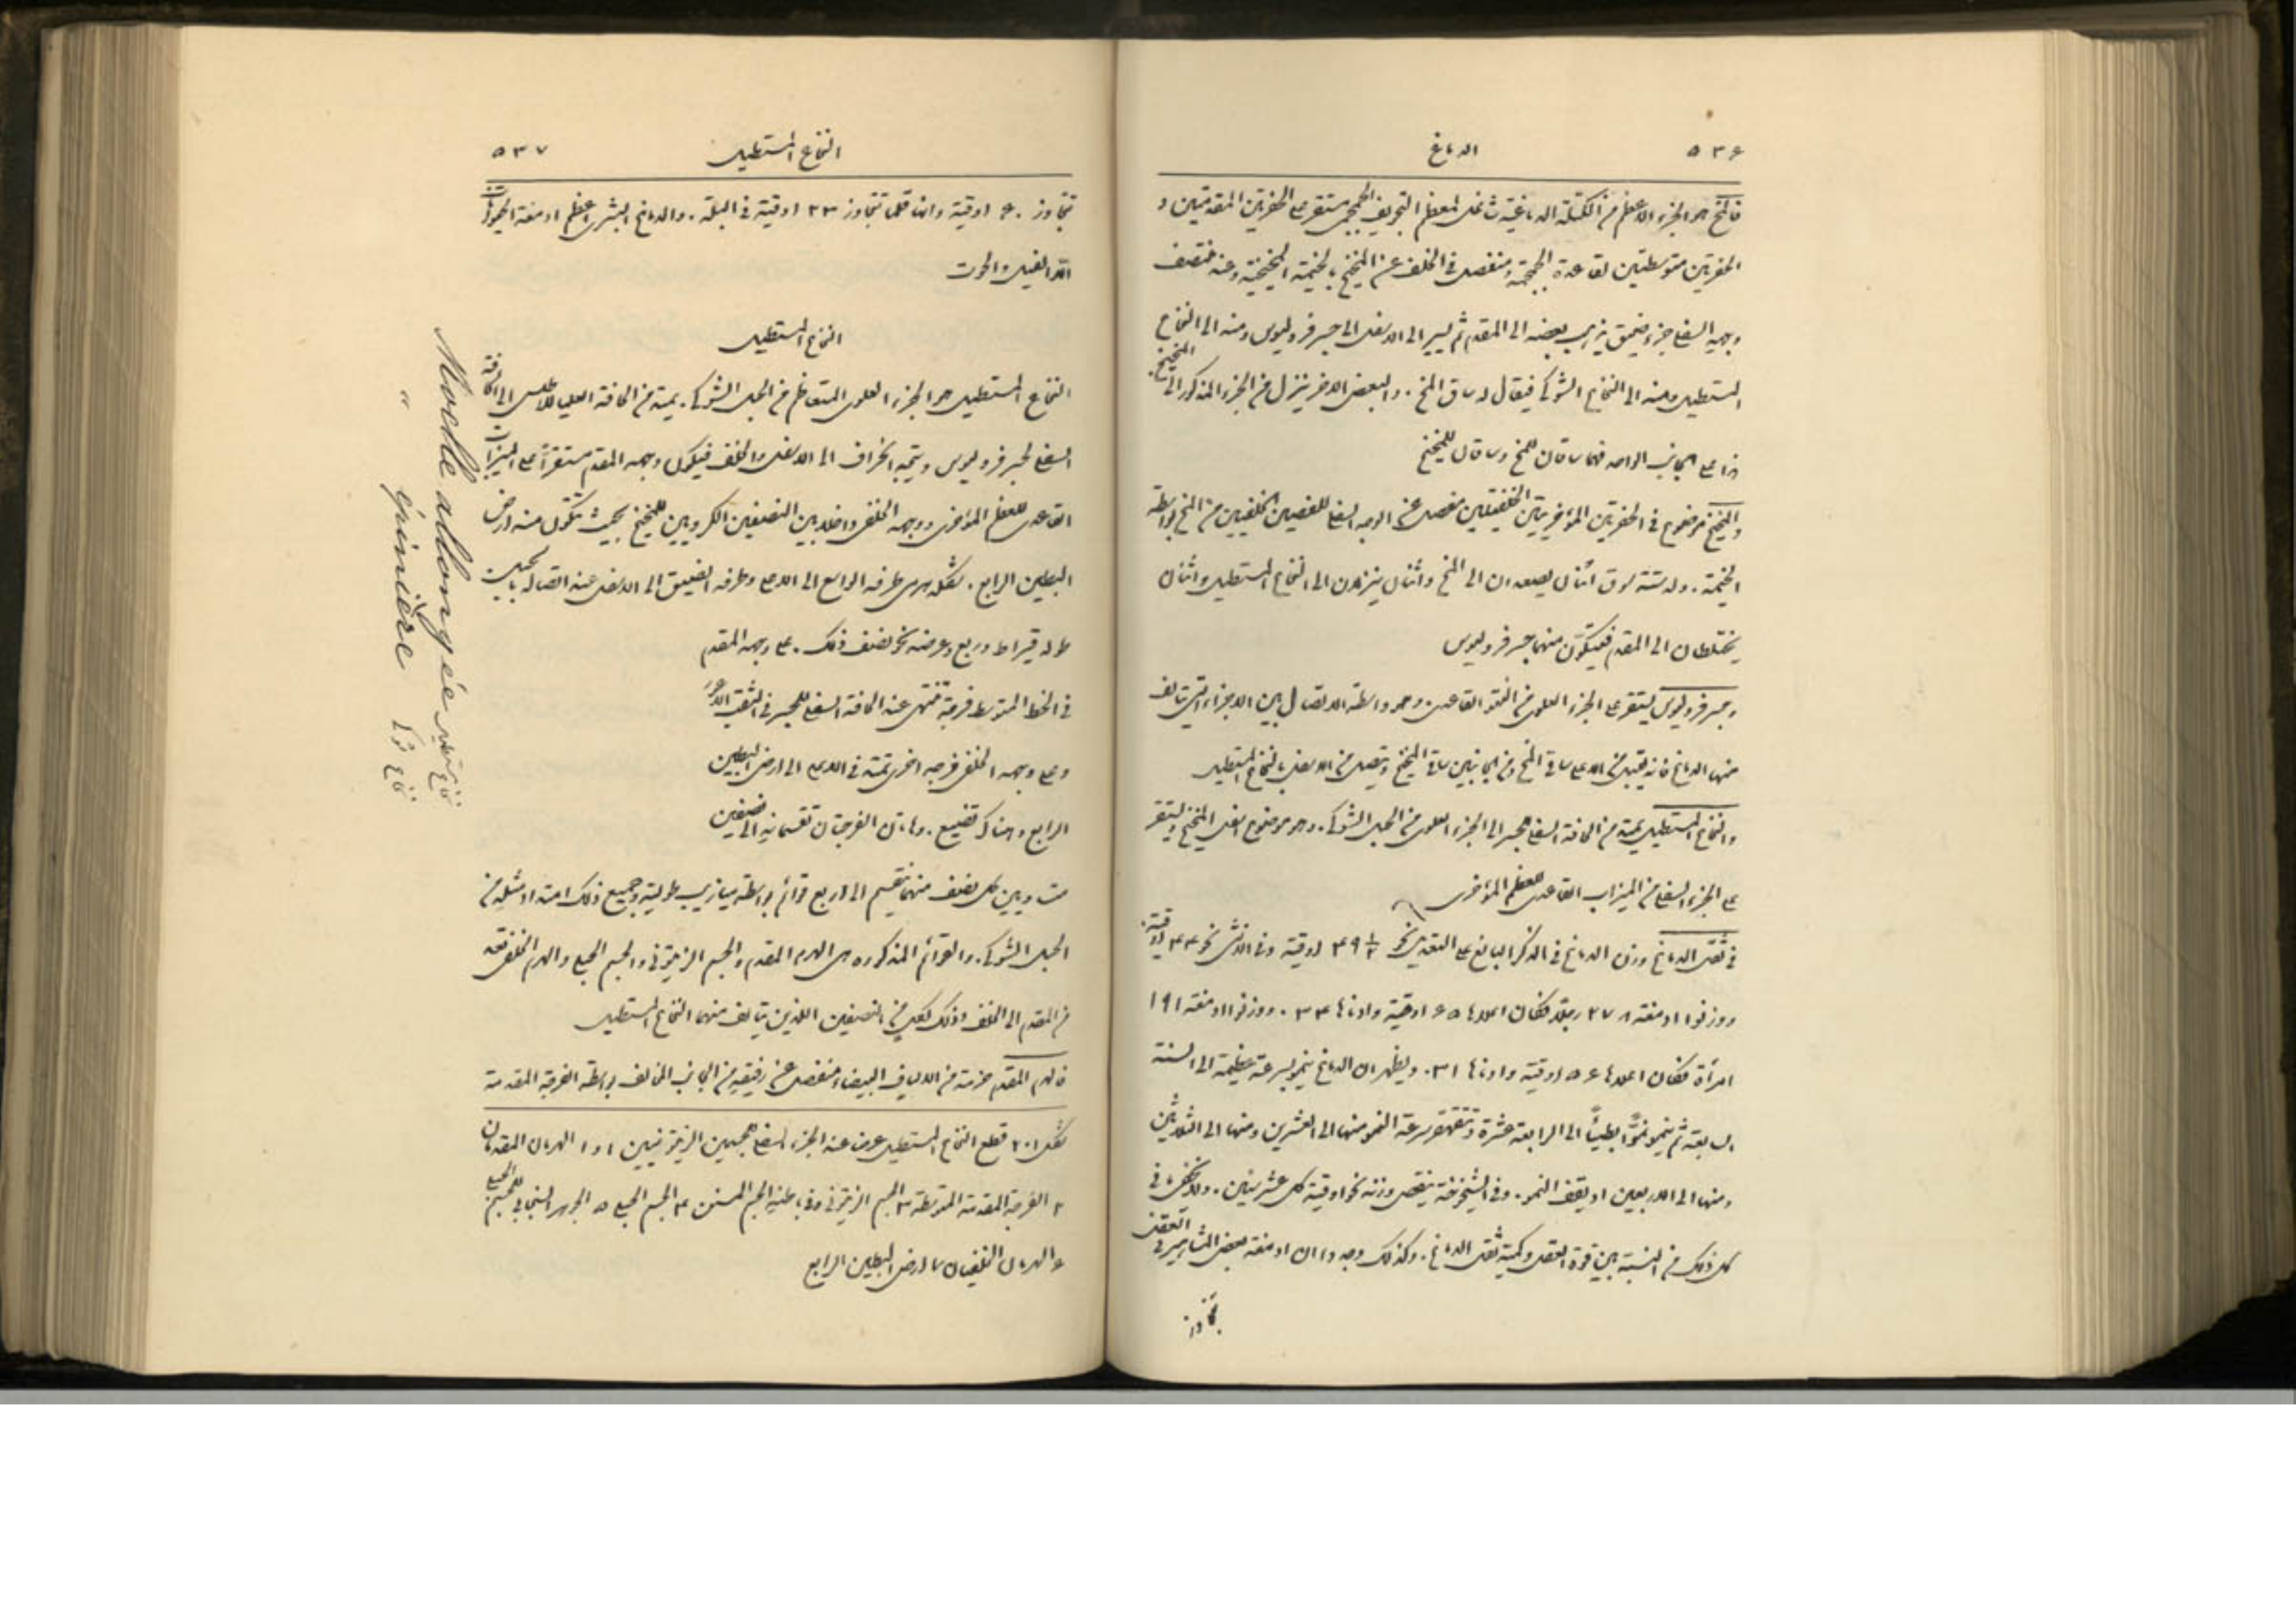 ٥٣٦
الدماغ
فالمخ هو الجزء الاعظم من الكتلة الدماغية شاغل لمعظم التجويف الجمجمي مستقر على الحفرتين المقدمتين و
الحفرتين متوسطتين لقاعدة الجمجمة ومنفصل في الخلف عن المخيخ بالخيمة المخيخية وعند منتصف
وجهه السفلي جزء ضيق يذهب بعضه الى المقدم ثم يسير الى الاسفل الى جسر فروليوس ومنه الى النخاع
المستطيل ومنه الى النخاع الشوكي فيقال له ساق المخ . والبعض الاخر ينزل من الجزء المذكور الى المخيخ.
هذا على الجانب الواحد فهما ساقان للمخ وساقان للمخيخ
والمخيخ موضوع في الحفرتين المؤخريتين الخلفيتين منفصل عن الوجه السفلي للفصين الخلفيين من المخ بواسطة
الخيمة . وله ستة سوق اثنان يصعدان الى المخ واثنان ينزلان الى النخاع المستطيل واثنان
يختلطان الى المقدم فيتكون منهما جسر فروليوس
وجسر فروليوس يستقر على الجزء العلوي من النتو القاعدي وهو واسطة الاتصال بين الاجزاء التي تتالف
منها الدماغ فانه يقبل من الاعلى ساقي المخ ومن الجانبين ساقي المخيخ ويتصل من الاسفل بالنخاع المستطيل
والنخاع المستطيل يمتد من الحافة السفلى للجسر الى الجزء العلوي من الحبل الشوكي . وهو موضوع اسفل المخيخ ويستقر
على الجزء السفلي من الميزاب القاعدي للعظم المؤخري
في ثقل الدماغ وزن الدماغ في الذكر البالغ على التقدير نحو ٤٩ ١/٢ اوقية وفي الانثى نحو ٤٤ اوقية.
ووزنوا ادمغة ٢٧٨ رجلا فكان اعلاها ٦٥ اوقية وادناها ٣٤ . ووزنوا ادمغة ١٩١
امرأة فكان اعلاها ٥٦ اوقية وادناها ٣١ . ويظهر ان الدماغ ينمو بسرعة عظيمة الى السنة
السابعة ثم ينمو نموًّا بطيئًا الى الرابعة عشرة وتتقهقر سرعة النمو منها الى العشرين ومنها الى الثلاثين
ومنها الى الاربعين او يقف النمو . وفي الشيخوخة ينقص وزنه نحو اوقية كل عشر سنين . ولا يخفى ما في
كل ذلك من النسبة بين قوة العقل وكمية ثقل الدماغ . وكذلك وجدوا ان ادمغة بعض المشاهير في العقل
تتجاوز
النخاع المستطيل
٥٣٧
تتجاوز ٦٠ اوقية وانها قلما تتجاوز ٢٣ اوقية في البله . والدماغ البشري اعظم ادمغة الحيوانات
الا الفيل والحوت
النخاع المستطيل
النخاع المستطيل هو الجزء العلوي المتعاظم من الحبل الشوكي . يمتد من الحافة العليا للاطلس الى الحافة
السفلى لجسر فروليوس ويتجه بانحراف الى الاسفل والخلف فيكون وجهه المقدم مستقرًا على الميزاب
القاعدي للعظم المؤخري ووجهه الخلفي داخلا بين النصفين الكرويين للمخيخ بحيث تتكون منه ارض
البطين الرابع . شكله هرمي طرفه الواسع الى الاعلى وطرفه الضيق الى الاسفل عند اتصاله بالحبل
طوله قيراط وربع وعرضه نحو نصف ذلك . على وجهه المقدم
في الخط المتوسط فرجة تنتهي عند الحافة السفلى للجسر في الثقب الاعور
وعلى وجهه الخلفي فرجة اخرى تمتد في الاعلى الى ارض البطين
الرابع وهناك تضيع . وهاتان الفرجتان تقسمانه الى نصفين
متساويين كل نصف منهما ينقسم الى اربع قوائم بواسطة ميازيب طولية وجميع ذلك امتداد مثله من
الحبل الشوكي . والقوائم المذكورة هي الهرم المقدم والجسم الزيتوني والجسم الحبلي والهرم الخلفي
من المقدم الى الخلف وذلك لكل من النصفين اللذين يتالف منهما النخاع المستطيل
فالهرم المقدم حزمة من الالياف البيضاء منفصل عن رفيقه من الجانب المخالف بواسطة الفرجة المقدمة
شكل ٢٠١ قطع النخاع المستطيل عرضا عند الجزء السفلي للجسمين الزيتونيين ١ و ١ الهرمان المقدمان
٢ الفرجة المقدمة المتوسطة ٣ الجسم الزيتوني وفي باطنه الجسم المسنن ٤ الجسم الحبلي ٥ الجوهر السنجابي للجسم الحبلي
٦ الهرمان الخلفيان ٧ ارض البطين الرابع
Moelle allongée نخاع مستطيل
" épinière نخاع